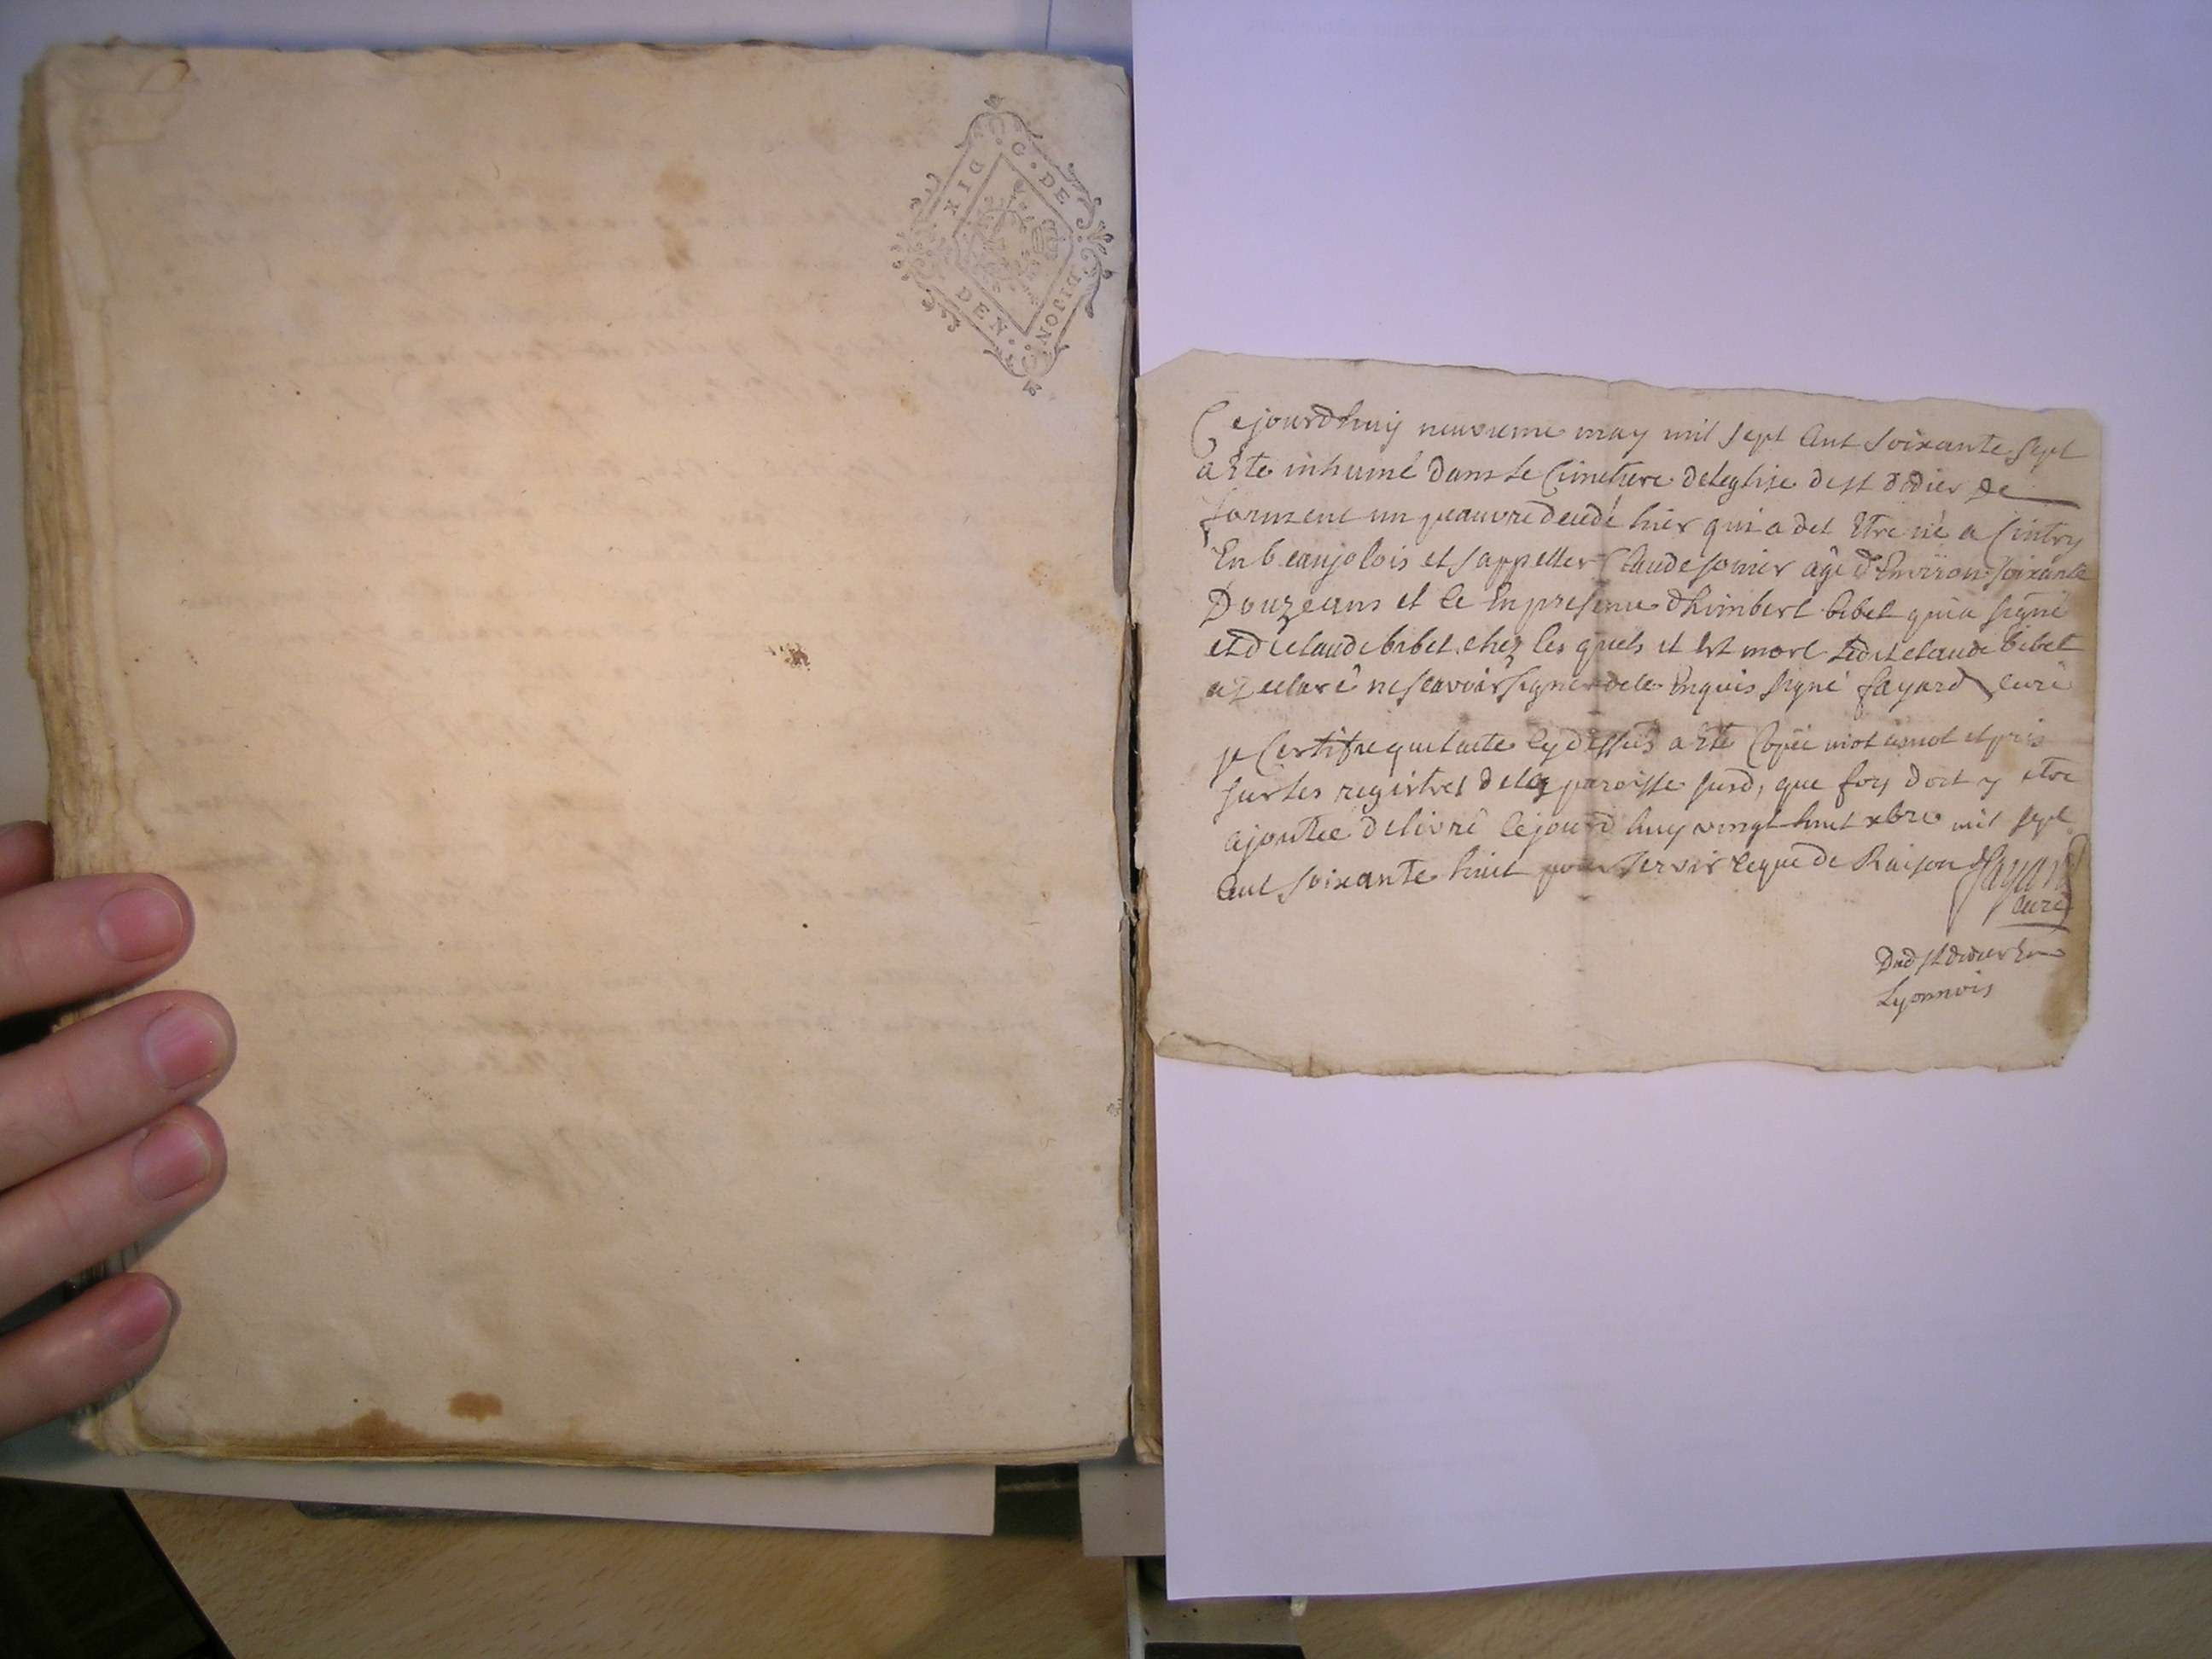 G. DE
DIJON
DIX
DEN.
Cejourdhuy neuvieme may mil sept cent soixante sept
a Eté inhumé dans le Cimetiere deleglise de st didier de
formené un peauvre decedé hier qui a det Etre né a Cintry
En beaujolois et sappeller Claude somier agé d'Environ soixante
Douze ans et ce En presence d'himbert bibet qui a signé
et de claude bibet chez les quels il Est mort ledit claude bibet
a declaré ne scavoir signer de ce Enquis signé fayard curé
je Certifie que lacte cy dessus a Eté Copié mot amot et pris
sur les registres de la paroisse susd, que foy doit y etre
ajoutée delivré cejourd huy vingt huit xbre mil sept
cent soixante huit pour servir ceque de Raison fayard
curé
Dud st didier En
Lyonnois